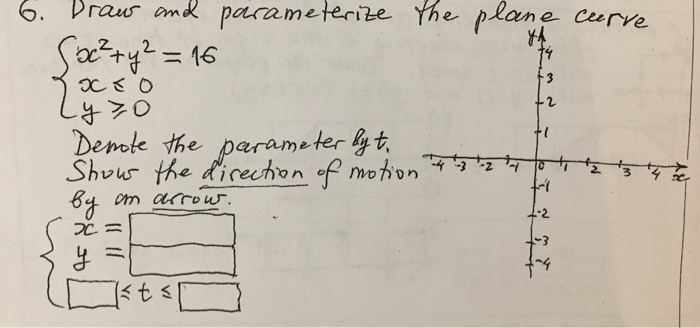 6. Draw and parameterize the plane curve
x²+y² = 16
x ≤ 0
y ≥ 0
Denote the parameter by t.
Show the direction of motion
by an arrow.
x =
y =
≤ t ≤
y
4
3
2
1
-4 -3 -2 -1 0 1 2 3 4 x
-1
-2
-3
-4